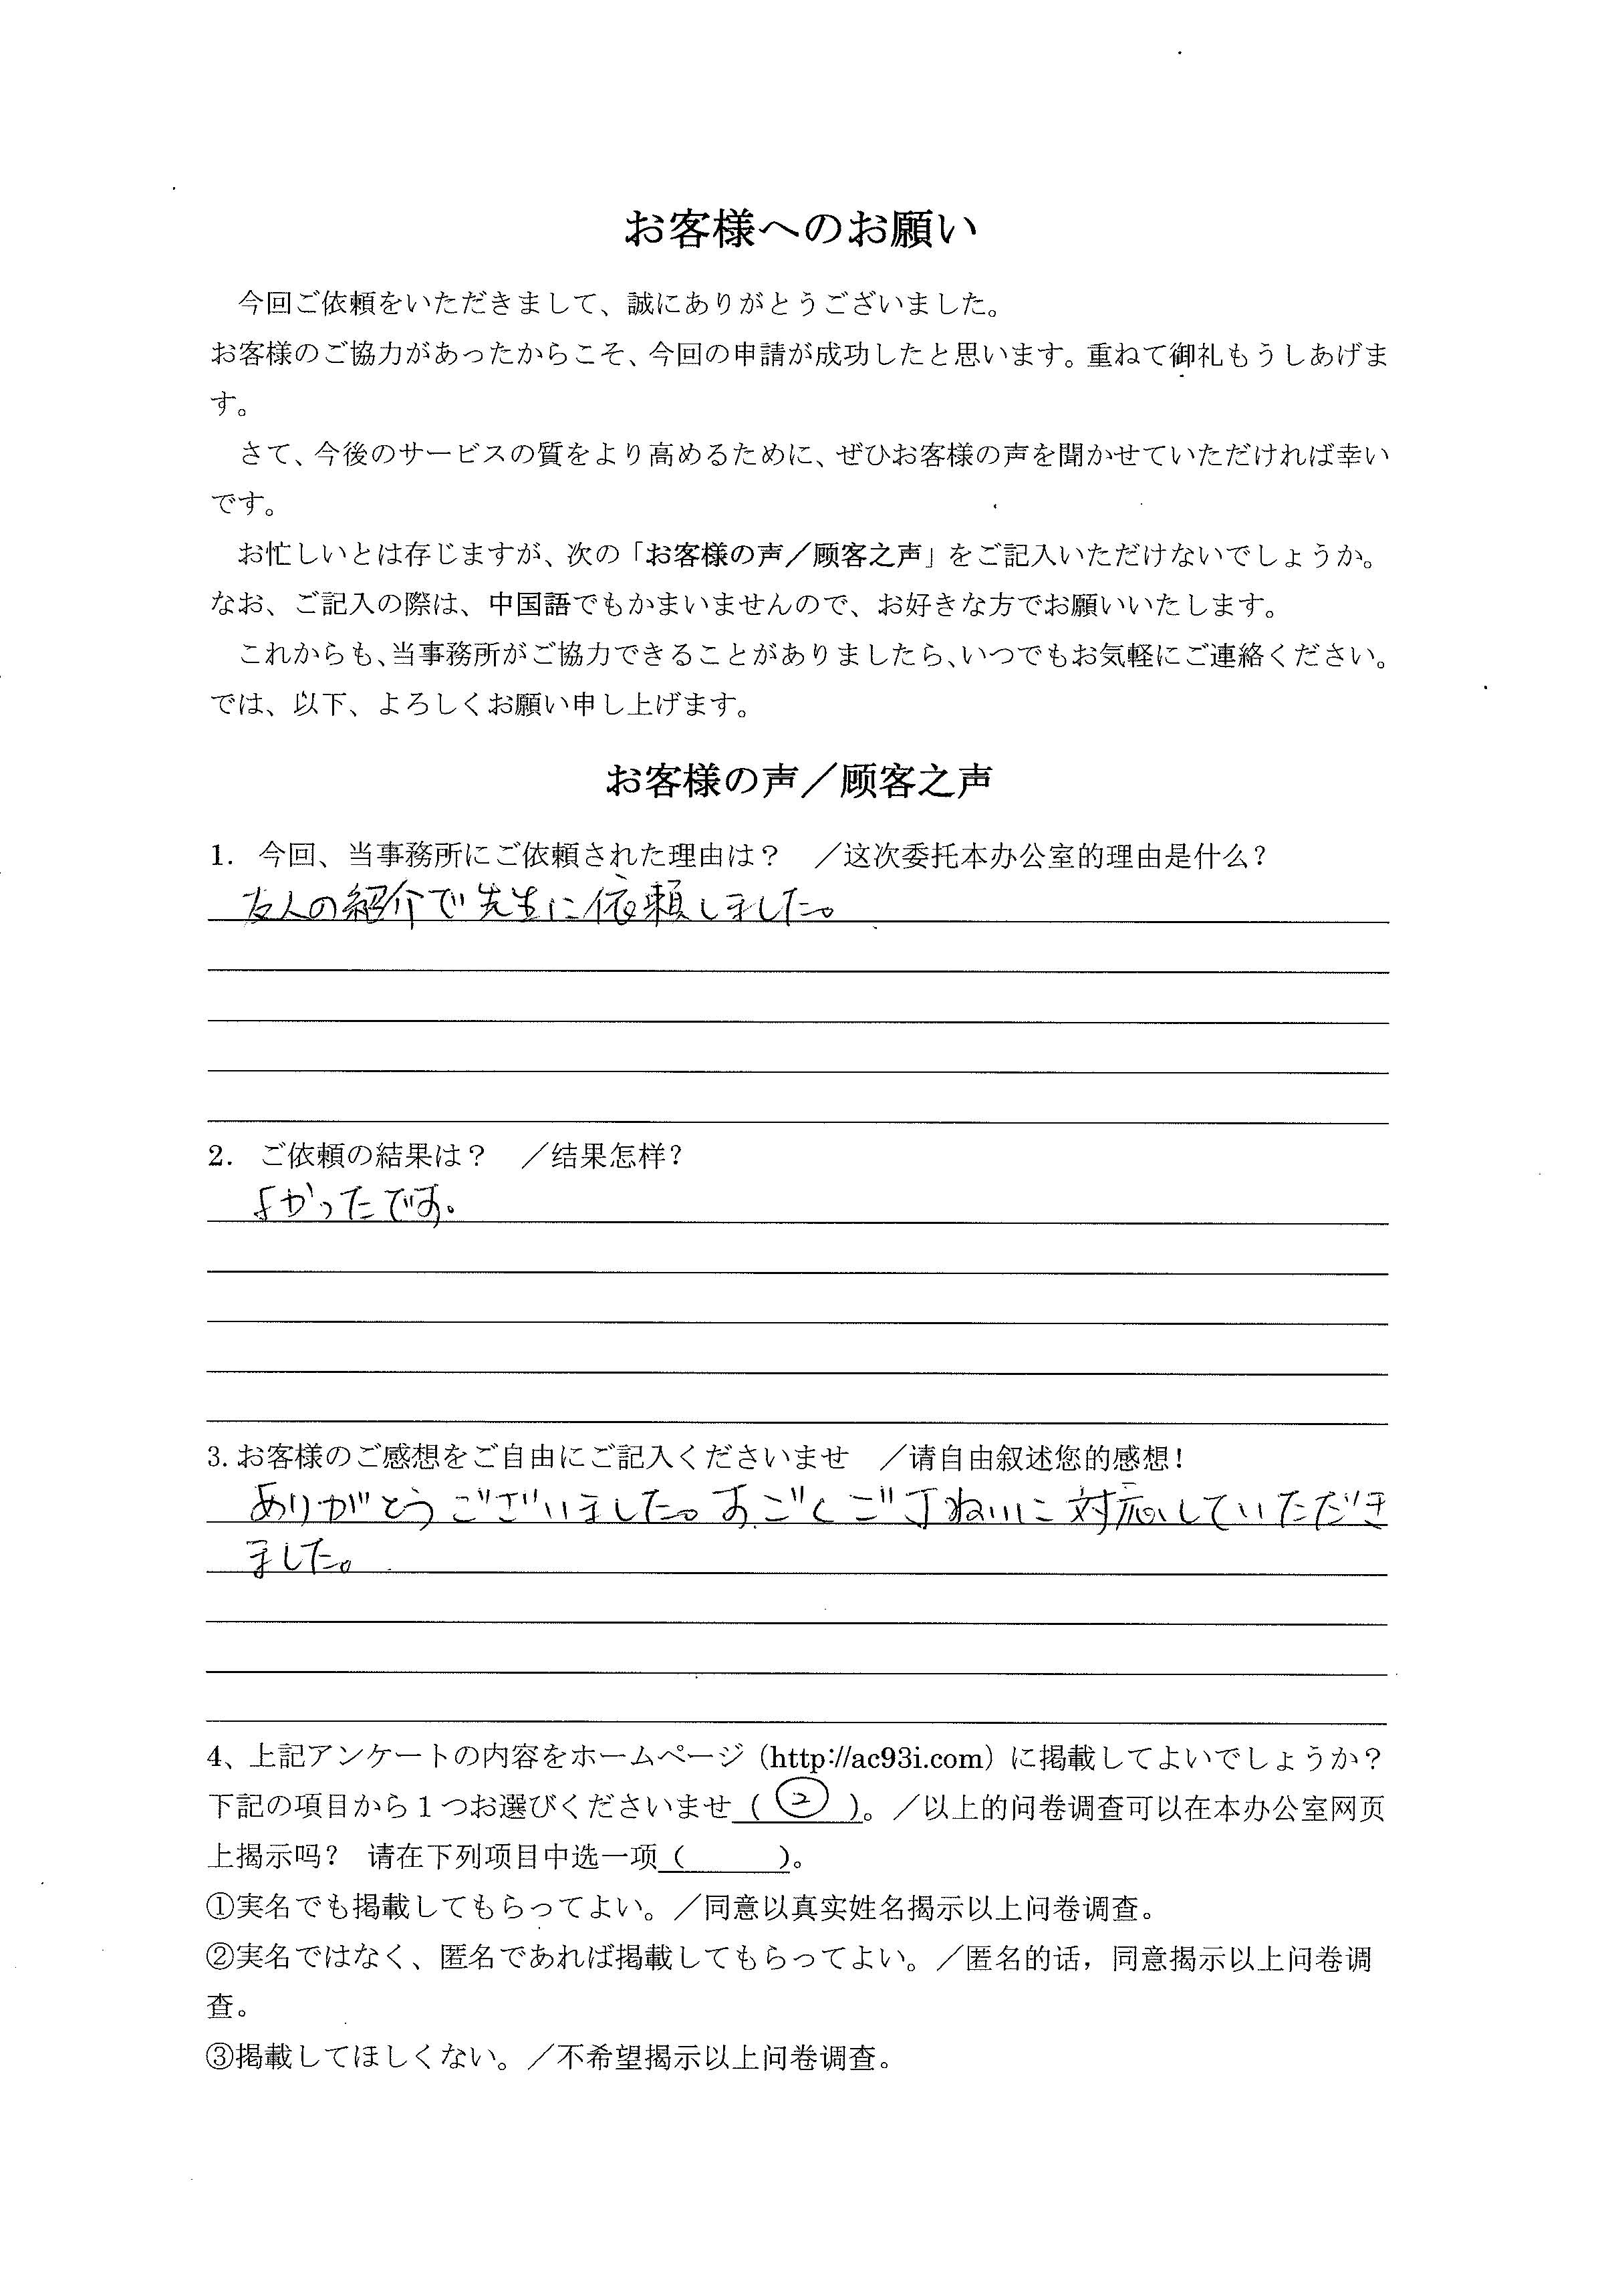 お客様へのお願い
今回ご依頼をいただきまして、誠にありがとうございました。
お客様のご協力があったからこそ、今回の申請が成功したと思います。重ねて御礼もうしあげま
す。
さて、今後のサービスの質をより高めるために、ぜひお客様の声を聞かせていただければ幸い
です。
お忙しいとは存じますが、次の「お客様の声／顾客之声」をご記入いただけないでしょうか。
なお、ご記入の際は、中国語でもかまいませんので、お好きな方でお願いいたします。
これからも、当事務所がご協力できることがありましたら、いつでもお気軽にご連絡ください。
では、以下、よろしくお願い申し上げます。
お客様の声／顾客之声
1. 今回、当事務所にご依頼された理由は？　／这次委托本办公室的理由是什么？
友人の紹介で先生に依頼しました。
2. ご依頼の結果は？　／结果怎样？
よかったです。
3. お客様のご感想をご自由にご記入くださいませ　／请自由叙述您的感想！
ありがとうございました。すごくご丁ねいに対応していただき
ました。
4、上記アンケートの内容をホームページ（http://ac93i.com）に掲載してよいでしょうか？
下記の項目から１つお選びくださいませ（ ② ）。／以上的问卷调查可以在本办公室网页
上揭示吗？ 请在下列项目中选一项（　　）。
①実名でも掲載してもらってよい。／同意以真实姓名揭示以上问卷调查。
②実名ではなく、匿名であれば掲載してもらってよい。／匿名的话，同意揭示以上问卷调
查。
③掲載してほしくない。／不希望揭示以上问卷调查。